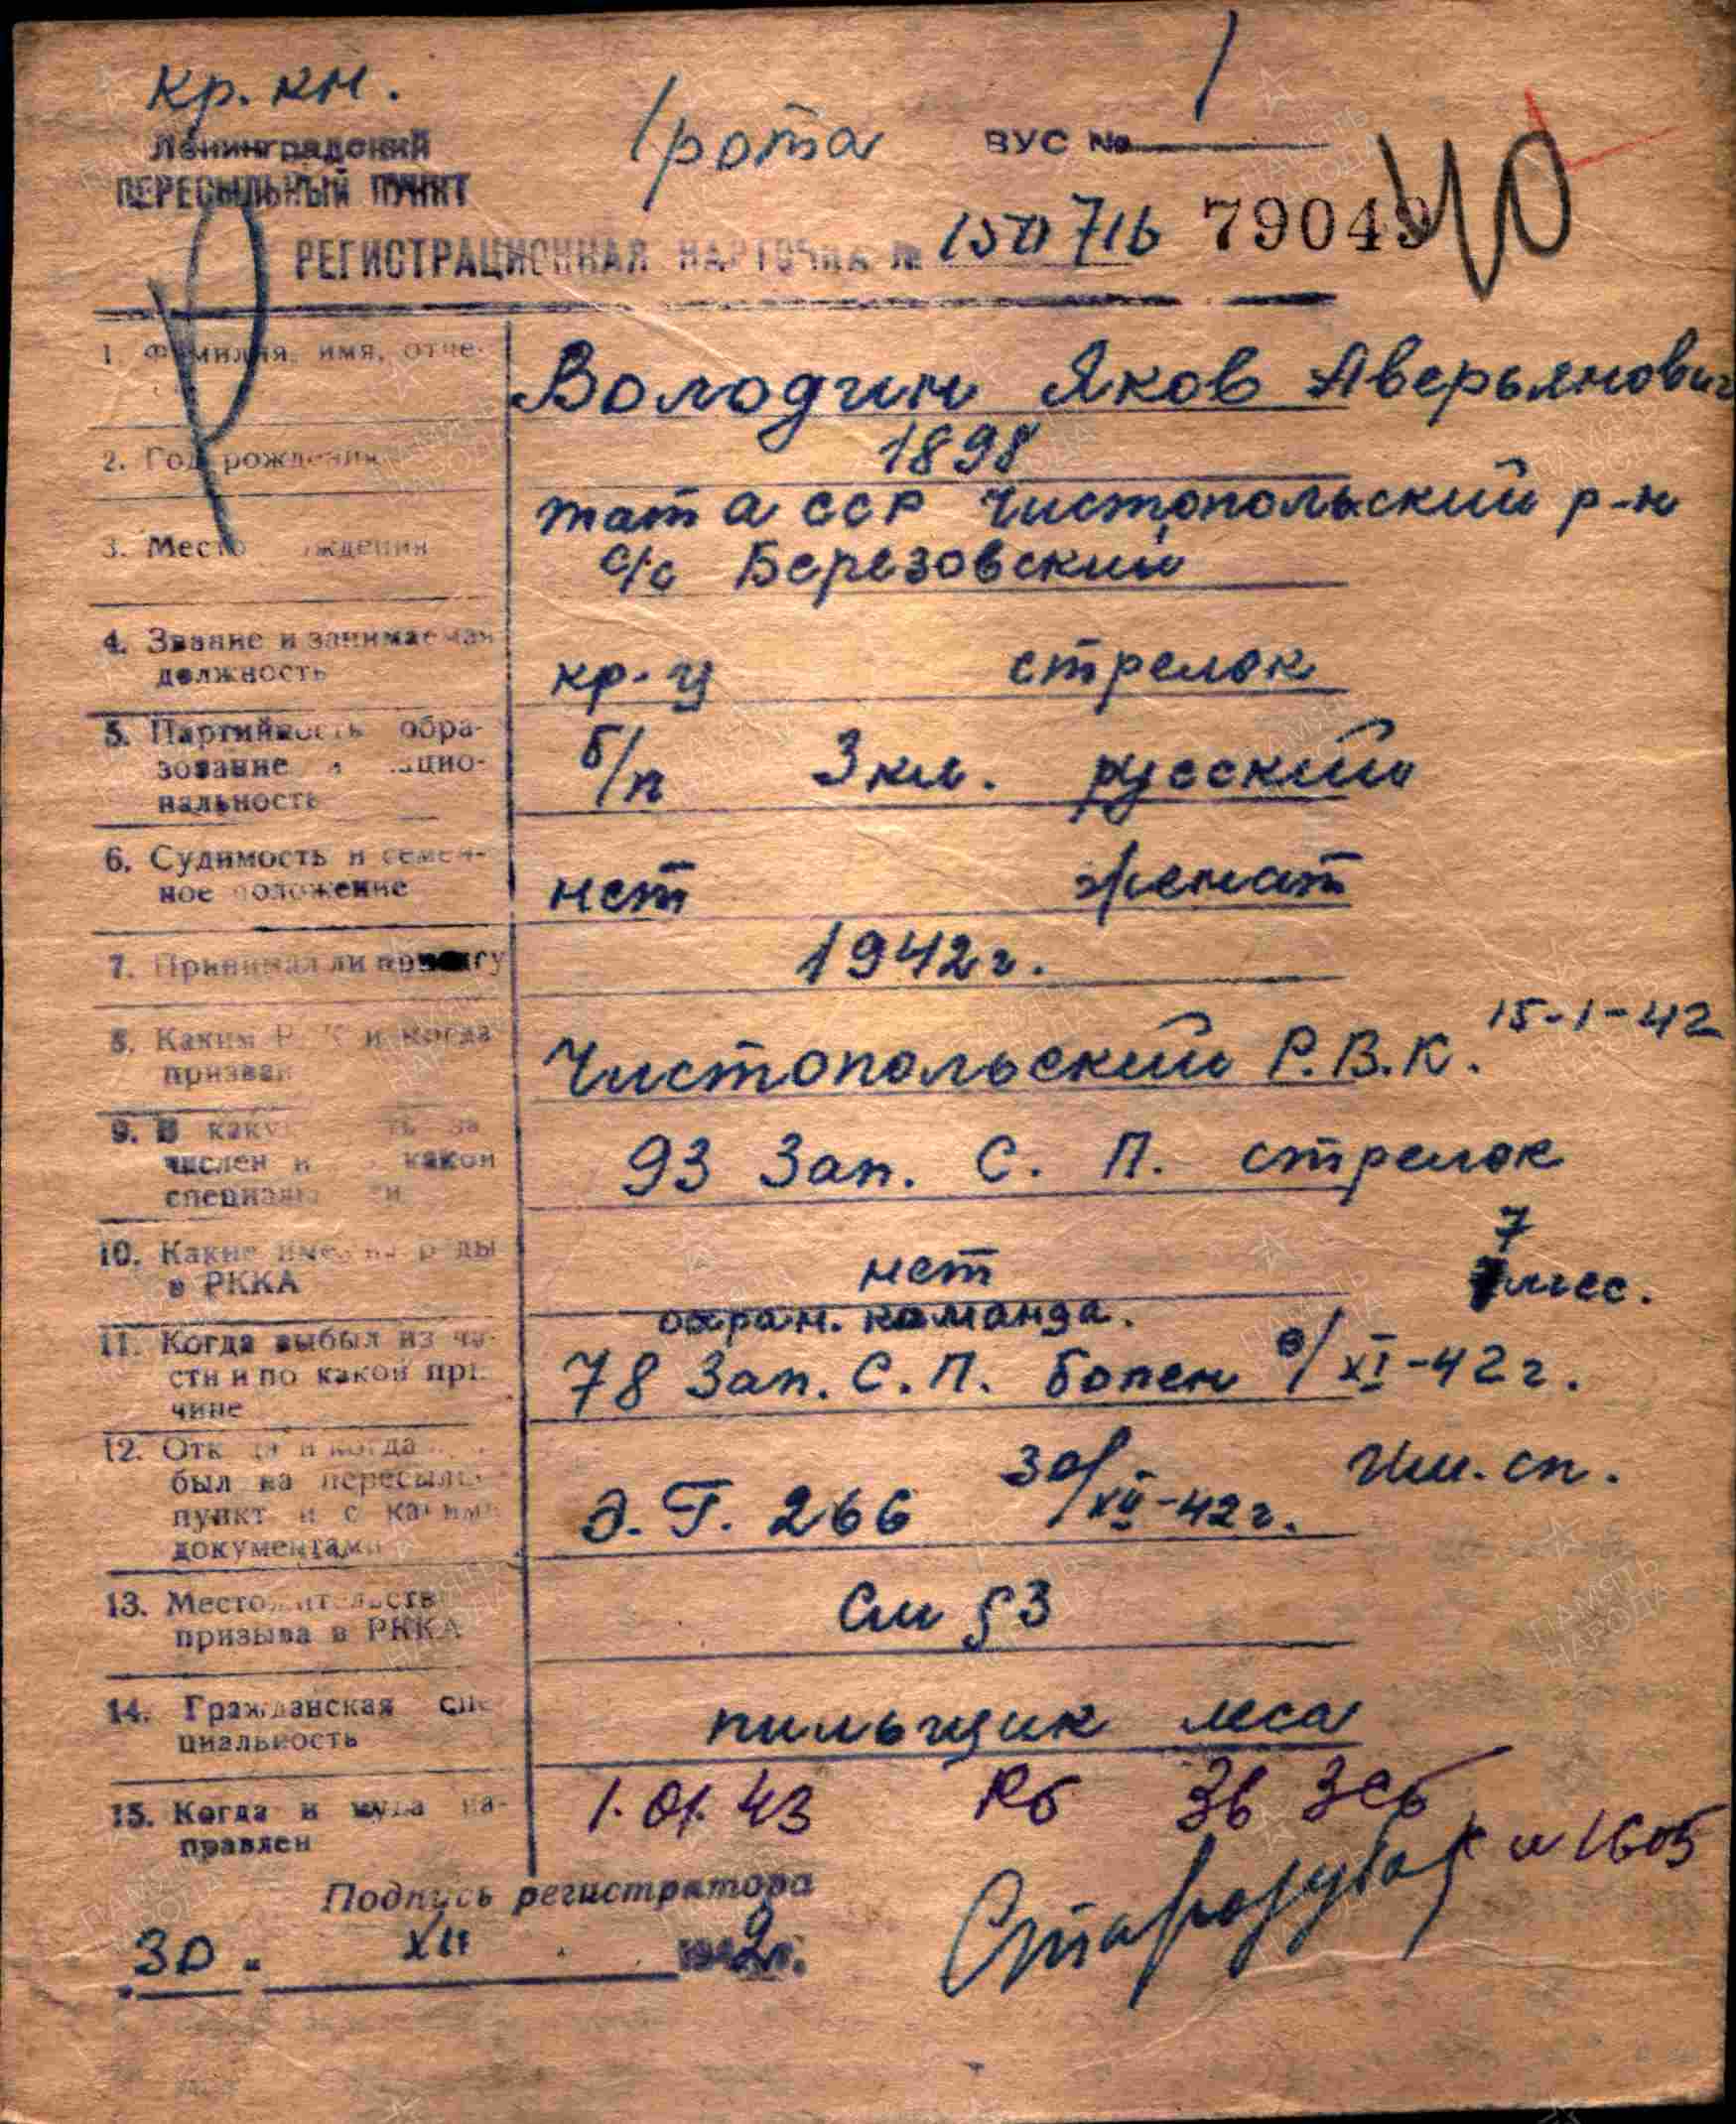 кр. кн.
Ленинградский
ПЕРЕСЫЛЬНЫЙ ПУНКТ
1 рота
ВУС № 1
РЕГИСТРАЦИОННАЯ КАРТОЧКА № 150716 79049
1. Фамилия, имя, отче-
Володин Яков Аверьянович
2. Год рождения
1898
3. Место рождения
тат а ССР Чистопольский р-н
с/с Березовский
4. Звание и занимаемая
должность
кр-ц стрелок
5. Партийность обра-
зование и нацио-
нальность
б/п 3 кл. русский
6. Судимость и семей-
ное положение
нет женат
7. Принимал ли присягу
1942г.
8. Каким РВК и когда
призван
Чистопольский Р.В.К. 15-1-42
9. В какую часть за-
числен и по какой
специальности
93 Зап. С. П. стрелок
10. Какие имел награды
в РККА
нет
7
мес.
11. Когда выбыл из ча-
сти и по какой при-
чине
охран. команда.
78 Зап. С. П. болен в/XI-42г.
12. Откуда и когда
был на пересыльн
пункт и с какими
документами
Э. Г. 266 30/XII-42г. Им. сп.
13. Местожительство
призыва в РККА
См § 3
14. Гражданская спе
циальность
пильщик леса
15. Когда и куда на-
правлен
1.01.43 Кб 36 Зсб
к и 1605
Подпись регистратора
30. XII 1942г.